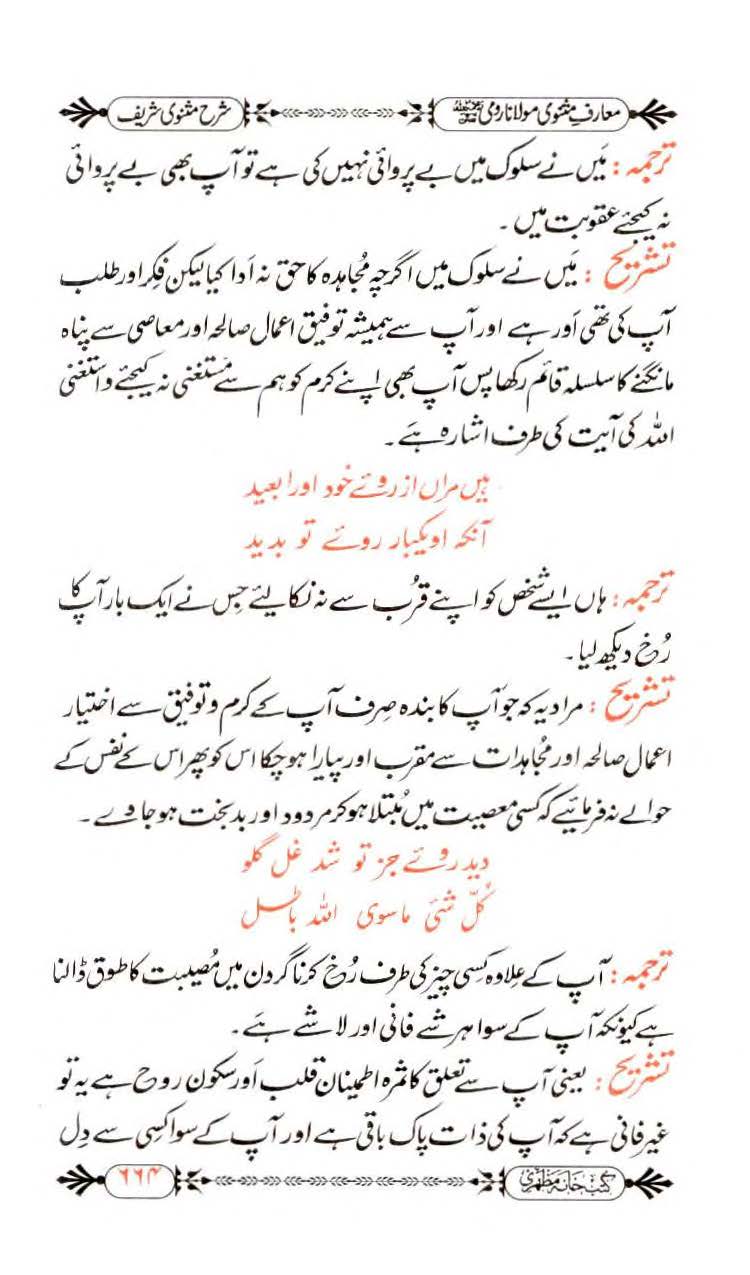 معارفِ مثنوی مولانا رومی رحمۃ اللہ علیہ
شرح مثنوی شریف
ترجمہ : مَیں نے سلوک میں بے پروائی نہیں کی ہے تو آپ بھی بے پروائی
نہ کیجئے عقوبت میں ۔
تشریح : مَیں نے سلوک میں اگرچہ مُجاہدہ کا حق نہ اَدا کیا لیکن فِکر اور طلب
آپ کی تھی اَور ہے اور آپ سے ہمیشہ توفیق اعمال صالحہ اور معاصی سے پناہ
مانگنے کا سلسلہ قائم رکھا پس آپ بھی اپنے کرم کو ہم سے مُستغنی نہ کیجئے واستغنی
اللہ کی آیت کی طرف اشارہ ہے ۔
ہیں مراں از روئے خود اورا بعید
آنکہ او یکبار روئے تو بدید
ترجمہ : ہاں ایسے شخص کو اپنے قُرب سے نہ نکالیئے جِس نے ایک بار آپ کا
رُخ دیکھ لیا ۔
تشریح : مراد یہ کہ جو آپ کا بندہ صِرف آپ کے کرم و توفیق سے اختیار
اعمال صالحہ اور مُجاہدات سے مقرب اور پیارا ہو چکا اس کو پھر اس کے نفس کے
حوالے نہ فرمائیے کہ کسی معصیت میں مُبتلا ہو کر مردود اور بدبخت ہو جاوے ۔
دید روئے جز تو شد غل گلو
کُلّ شئ ماسوی اللہ باطل
ترجمہ : آپ کے عِلاوہ کِسی چیز کی طرف رُخ کرنا گردن میں مُصیبت کا طوق ڈالنا
ہے کیونکہ آپ کے سوا ہر شے فانی اور لاشے ہے ۔
تشریح : یعنی آپ سے تعلق کا ثمرہ اطمینان قلب اَور سکون روح ہے یہ تو
غیر فانی ہے کہ آپ کی ذات پاک باقی ہے اور آپ کے سوا کِسی سے دِل
کتب خانہ مظہری
۶۶۴